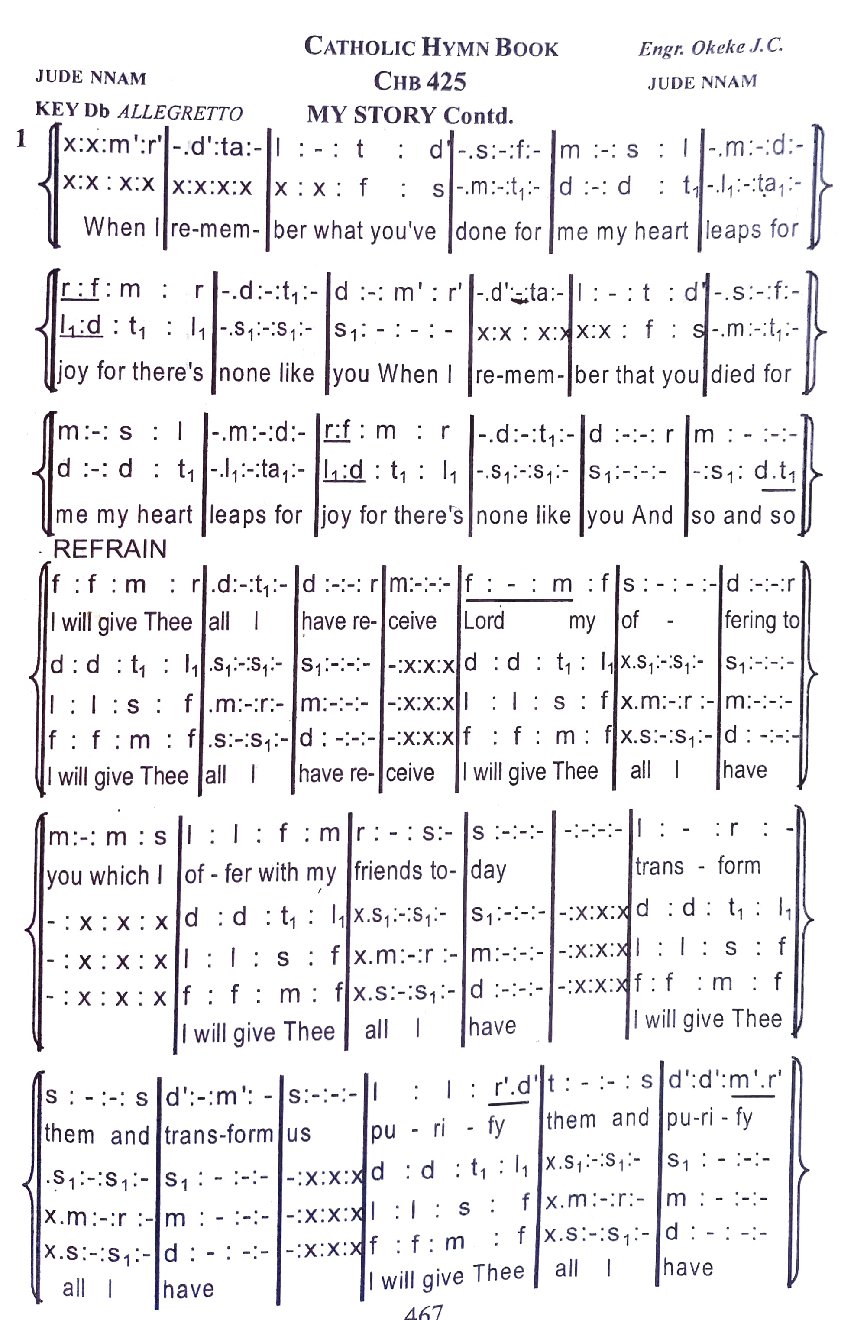 CATHOLIC HYMN BOOK
Engr. Okeke J.C.
JUDE NNAM
CHB 425
JUDE NNAM
KEY Db ALLEGRETTO
MY STORY Contd.
1
x:x:m':r'|-.d':ta:-|l : - : t : d'|-.s:-:f:-|m :-: s : l|-.m:-:d:-
x:x : x:x|x:x:x:x|x : x : f : s|-.m:-:t₁:-|d :-: d : t₁|-.l₁:-:ta₁:-
When I|re-mem-|ber what you've|done for|me my heart|leaps for
r : f : m : r|-.d:-:t₁:-|d :-: m' : r'|-.d':-:ta:-|l : - : t : d'|-.s:-:f:-
l₁:d : t₁ : l₁|-.s₁:-:s₁:-|s₁: - : - : -|x:x : x:x|x:x : f : s|-.m:-:t₁:-
joy for there's|none like|you When I|re-mem-|ber that you|died for
m:-: s : l|-.m:-:d:-|r:f : m : r|-.d:-:t₁:-|d :-:-: r|m : - :-:-
d :-: d : t₁|-.l₁:-:ta₁:-|l₁:d : t₁ : l₁|-.s₁:-:s₁:-|s₁:-:-:-|-:s₁: d.t₁
me my heart|leaps for|joy for there's|none like|you And|so and so
REFRAIN
f : f : m : r|.d:-:t₁:-|d :-:-: r|m:-:-:-|f : - : m : f|s : - : - :-|d :-:-:r
I will give Thee|all I|have re-|ceive|Lord my|of -|fering to
d : d : t₁ : l₁|.s₁:-:s₁:-|s₁:-:-:-|-:x:x:x|d : d : t₁ : l₁|x.s₁:-:s₁:-|s₁:-:-:-
l : l : s : f|.m:-:r:-|m:-:-:-|-:x:x:x|l : l : s : f|x.m:-:r :-|m:-:-:-
f : f : m : f|.s:-:s₁:-|d : -:-:-|-:x:x:x|f : f : m : f|x.s:-:s₁:-|d : -:-:-
I will give Thee|all I|have re-|ceive|I will give Thee|all I|have
m:-: m : s|l : l : f : m|r : - : s:-|s :-:-:-|-:-:-:-|l : - : r : -
you which I|of - fer with my|friends to-|day|trans - form
- : x : x : x|d : d : t₁ : l₁|x.s₁:-:s₁:-|s₁:-:-:-|-:x:x:x|d : d : t₁ : l₁
- : x : x : x|l : l : s : f|x.m:-:r :-|m:-:-:-|-:x:x:x|l : l : s : f
- : x : x : x|f : f : m : f|x.s:-:s₁:-|d :-:-:-|-:x:x:x|f : f : m : f
I will give Thee|all I|have|I will give Thee
s : - :-: s|d':-:m': -|s:-:-:-|l : l : r'.d'|t : - :- : s|d':d':m'.r'
them and|trans-form|us|pu - ri - fy|them and|pu-ri - fy
.s₁:-:s₁:-|s₁ : - :-:-|-:x:x:x|d : d : t₁ : l₁|x.s₁:-:s₁:-|s₁ : - :-:-
x.m:-:r :-|m : - :-:-|-:x:x:x|l : l : s : f|x.m:-:r:-|m : - :-:-
x.s:-:s₁:-|d : - : -:-|-:x:x:x|f : f : m : f|x.s:-:s₁:-|d : - : -:-
all I|have|I will give Thee|all I|have
467